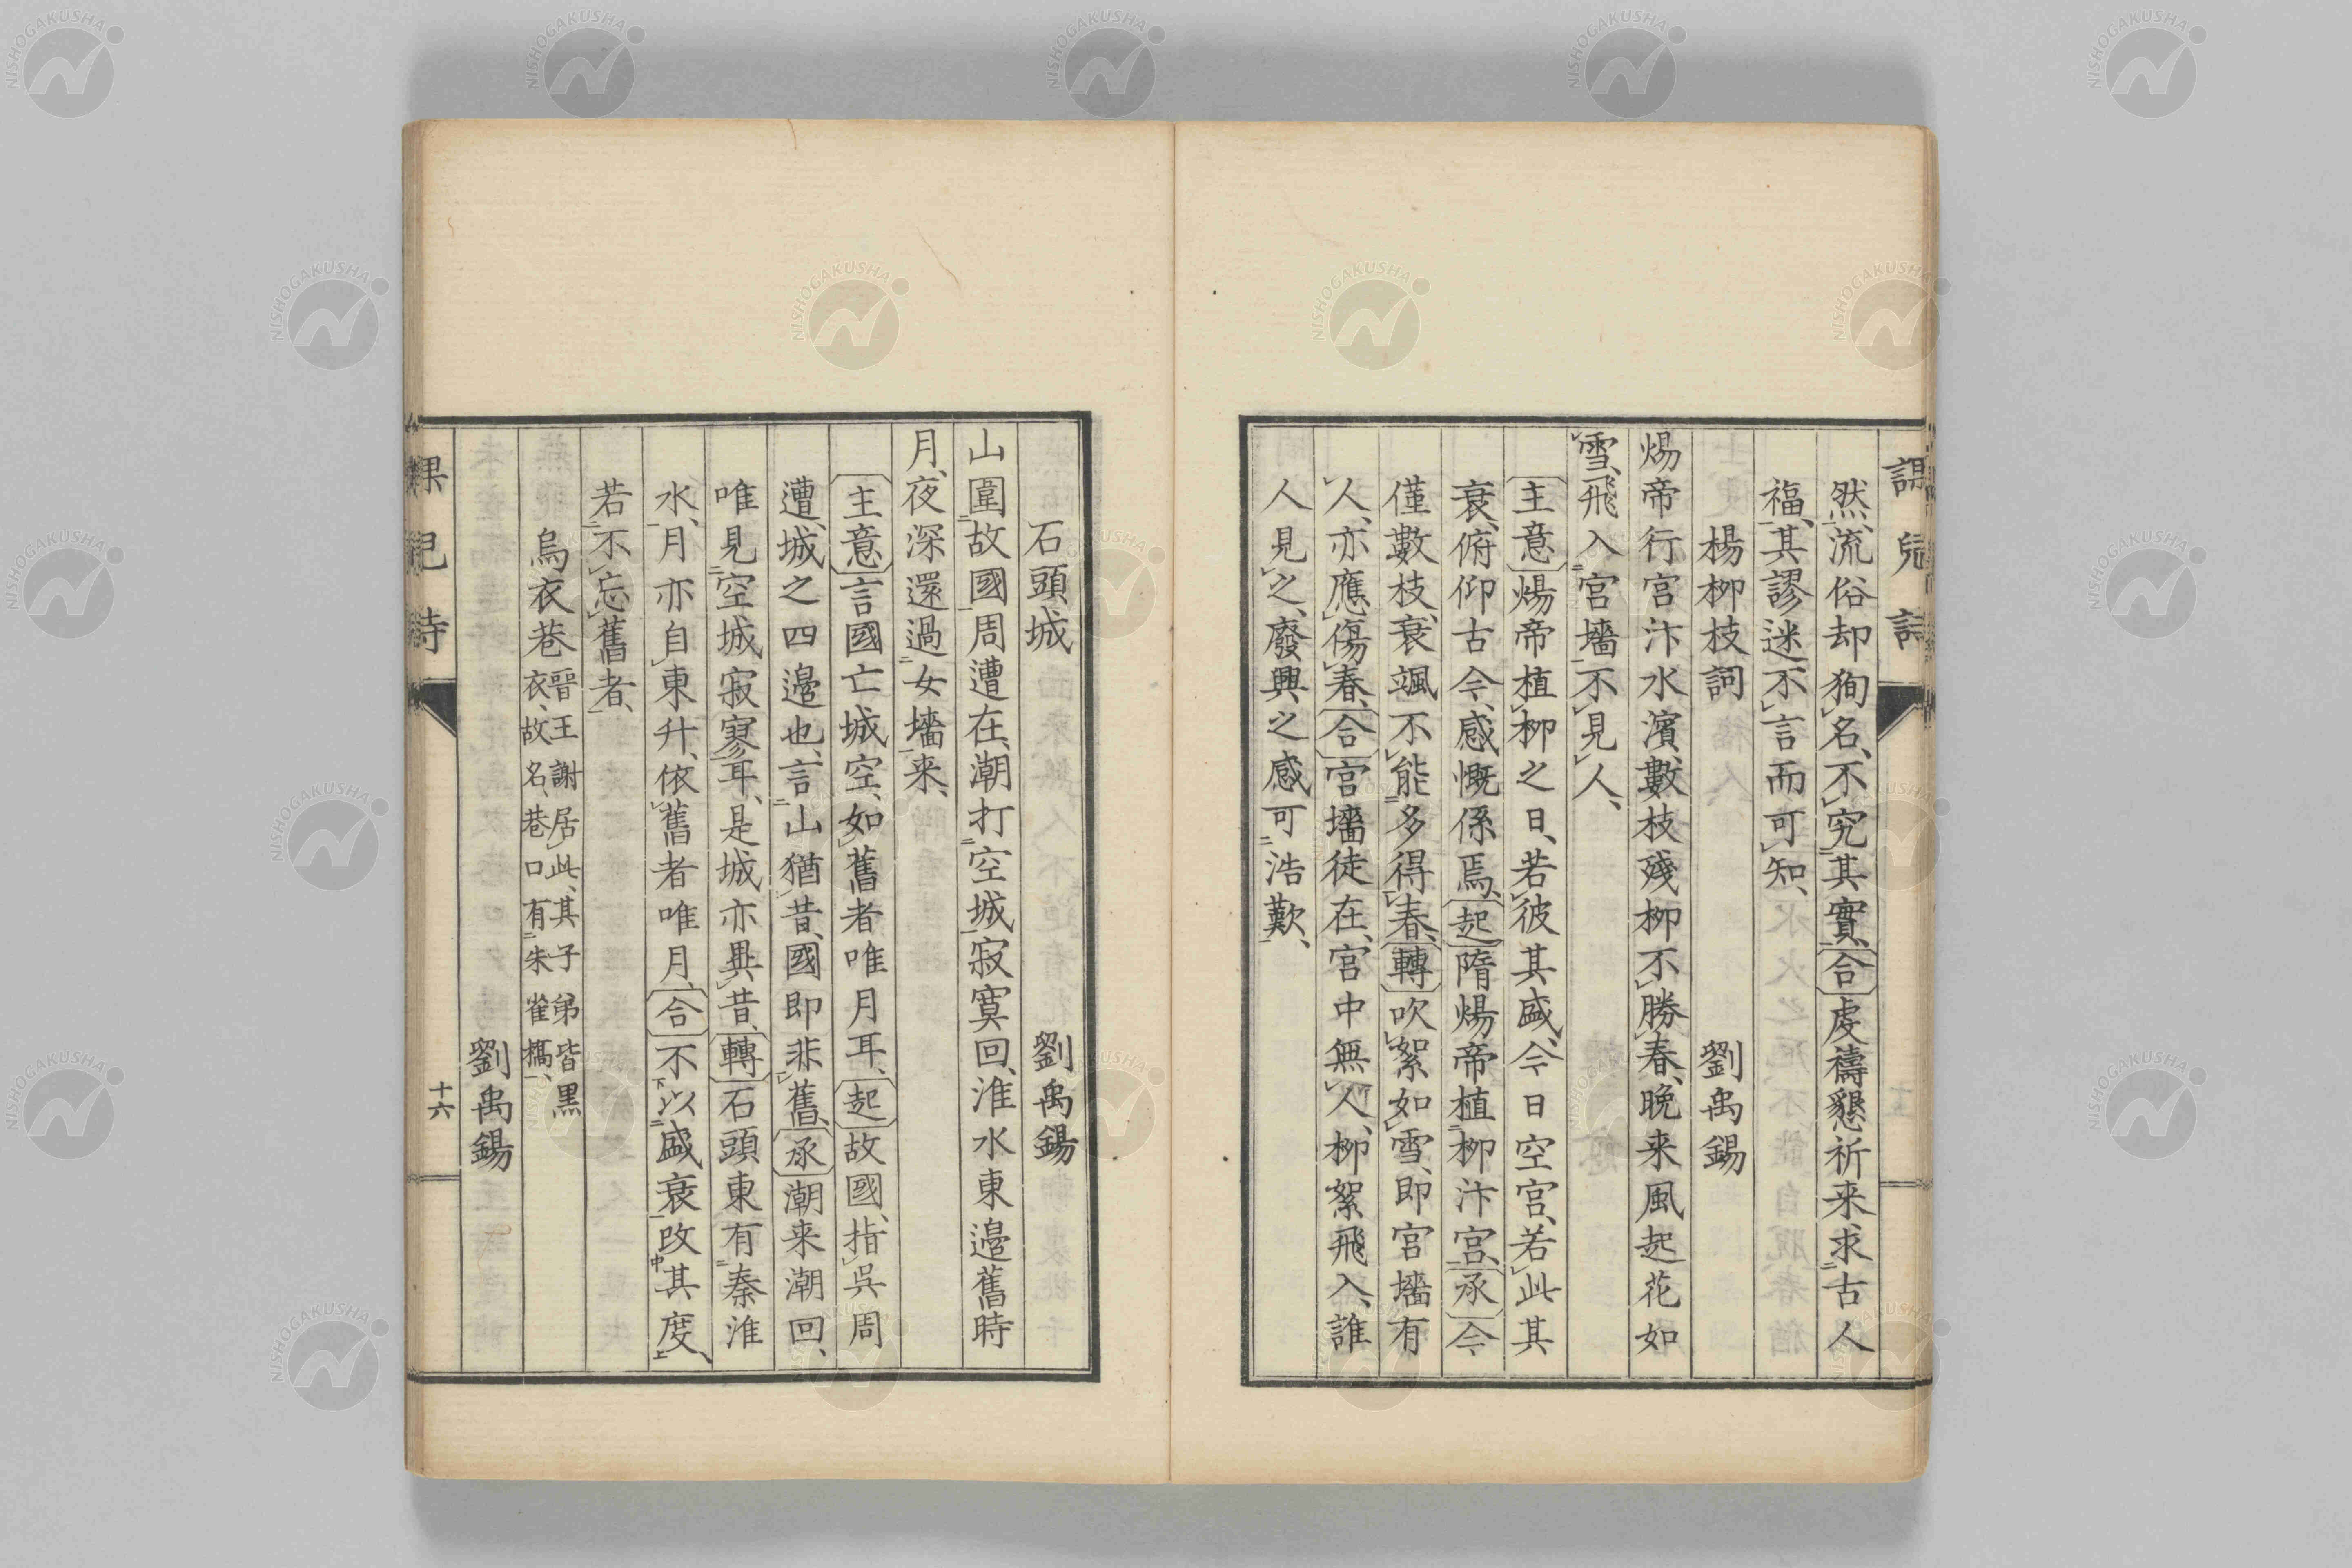 課兒詩
然、流俗却狥名、不究其實、合虔禱懇祈来求古人
福、其謬迷不言而可知、
楊柳枝詞 劉禹錫
煬帝行宮汴水濱、數枝殘柳不勝春、晩来風起花如
雪、飛入宮墻不見人、
主意煬帝植柳之日、若彼其盛、今日空宮、若此其
衰、俯仰古今、感慨係焉、起隋煬帝植柳汴宮、承今
僅數枝、衰颯不能多得春、轉吹絮如雪、即宮墻有
人、亦應傷春、合宮墻徒在、宮中無人、柳絮飛入、誰
人見之、廢興之感可浩歎、
石頭城 劉禹錫
山圍故國周遭在、潮打空城寂寞回、淮水東邉舊時
月、夜深還過女墻来、
主意言國亡城空、如舊者唯月耳、起故國、指吳周
遭、城之四邉也、言山猶昔、國即非舊、承潮来潮回、
唯見空城寂寥耳、是城亦異昔、轉石頭東有秦淮
水、月亦自東升、依舊者唯月、合不以盛衰改其度、
若不忘舊者、
烏衣巷 晉王謝居此、其子弟皆黒
衣、故名、巷口有朱雀橋、
劉禹錫
課兒詩
十六
NISHOGAKUSHA